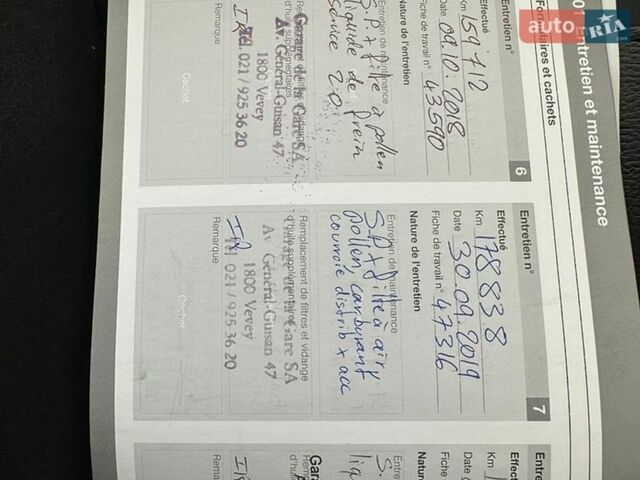 01 Entretien et maintenance
Formulaires et cachets
Entretien n° 6
Effectué
Km 159 712
Date 09.10.2018
Fiche de travail n° 43590
Nature de l'entretien
Entretien de maintenance
S.P + filtre à pollen
liquide de frein
service 2.0
d'huile supplémentaires
Garage de la Gare SA
Av. Général-Guisan 47
1800 Vevey
Tél. 021 / 925 36 20
Remarque
Cachet
Entretien n° 7
Effectué
Km 178 838
Date 30.09.2019
Fiche de travail n° 47316
Nature de l'entretien
Entretien de maintenance
S.P + filtre à air,
pollen, carburant
courroie distrib + acc
Remplacement de filtres et vidange
d'huile supplémentaires
Garage de la Gare SA
Av. Général-Guisan 47
1800 Vevey
Tél. 021 / 925 36 20
Remarque
Cachet
Entre
Effec
Km
Date
Fiche
Natur
Entre
S.
liq
Rem
d'hu
Gara
Rema
auto RIA